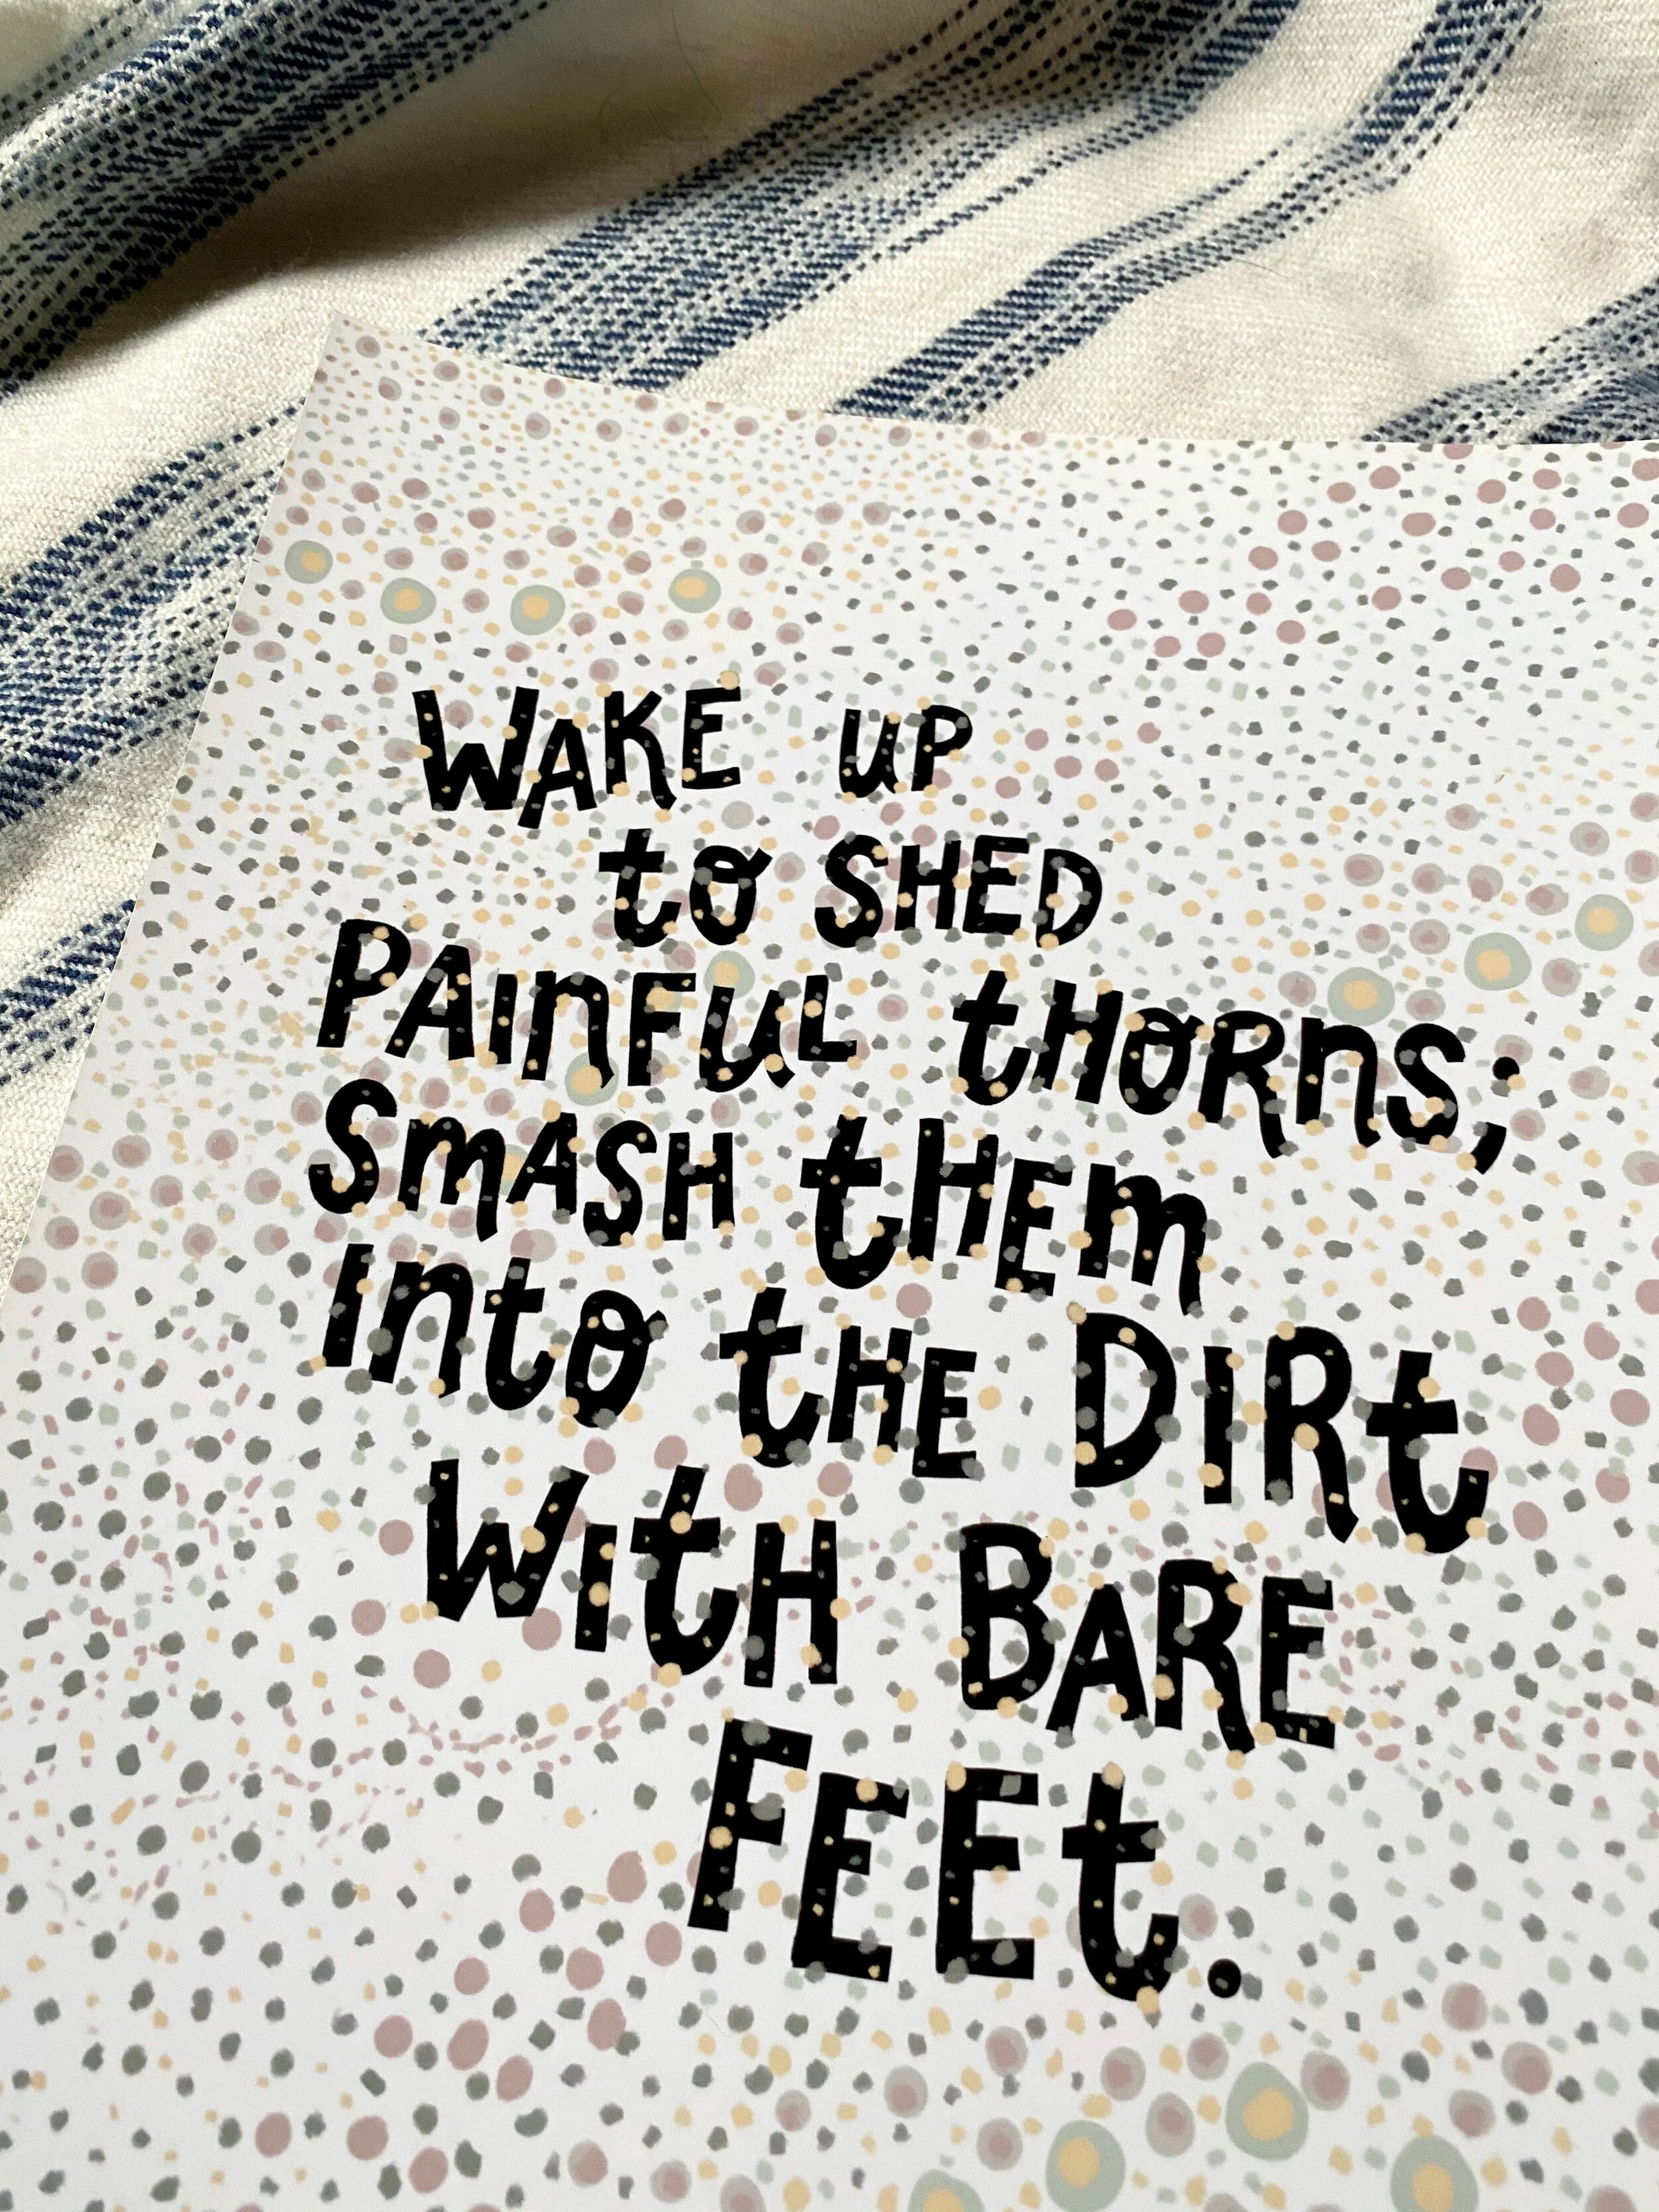 WAKE UP
to SHED
PAInFuL tHORnS;
SmASH tHEm
Into tHE DIRt
WItH BARE
FEEt.